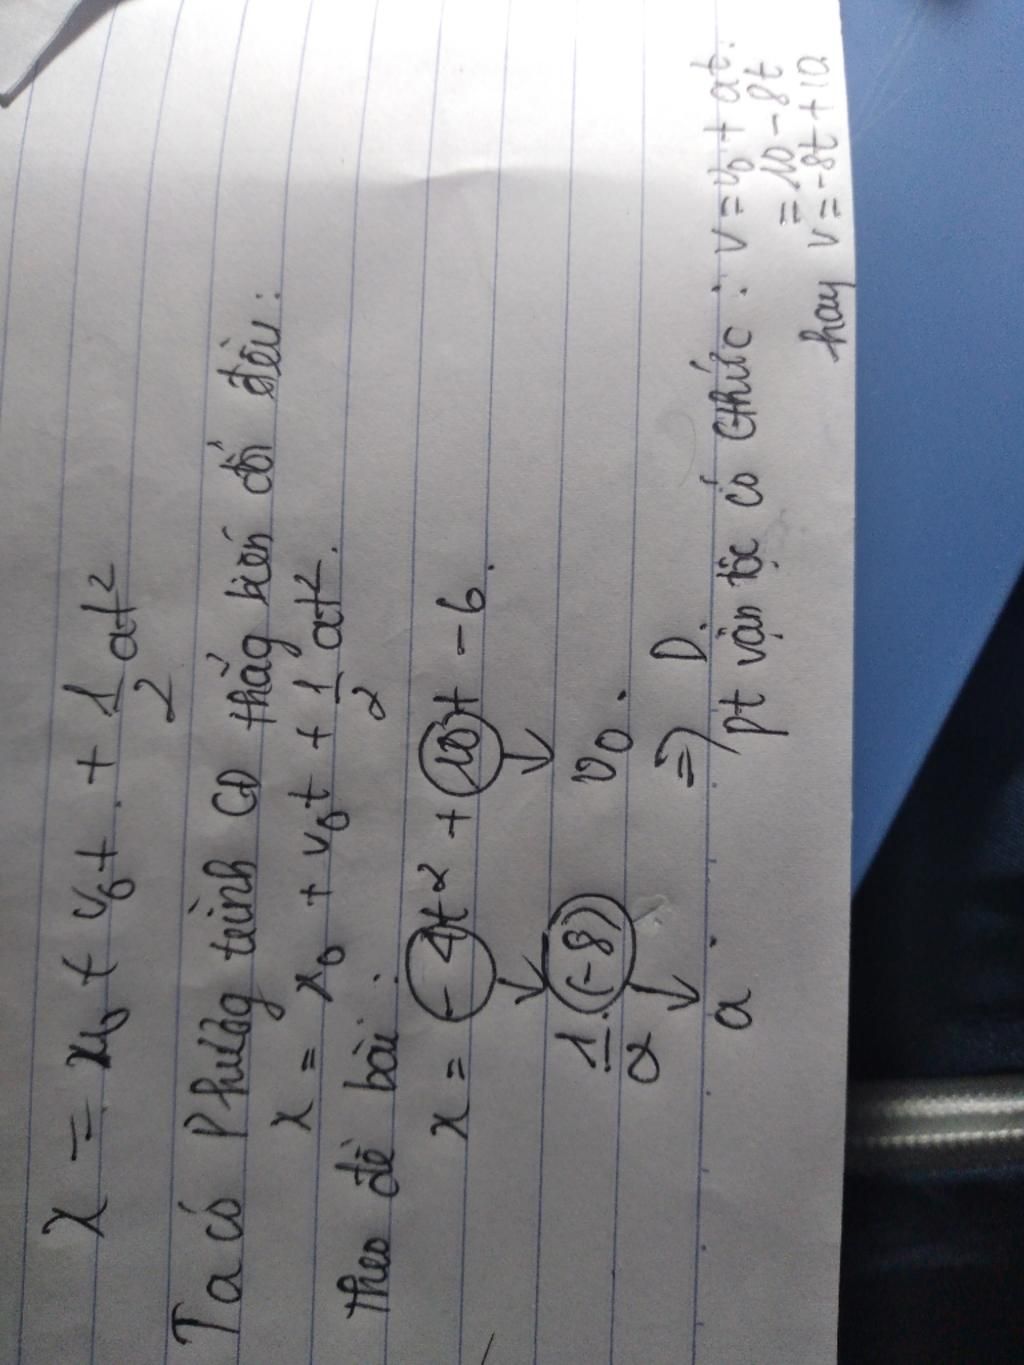 x = x₀ + v₀t + 1/2 at²
Ta có Phương trình CĐ thẳng biến đổi đều:
x = x₀ + v₀t + 1/2 at².
Theo đề bài:
x = -4t² + 10t - 6.
1/2.(-8) v₀.
a. => D.
pt vận tốc có cthức: v = v₀ + at.
= 10 - 8t
hay v = -8t + 10